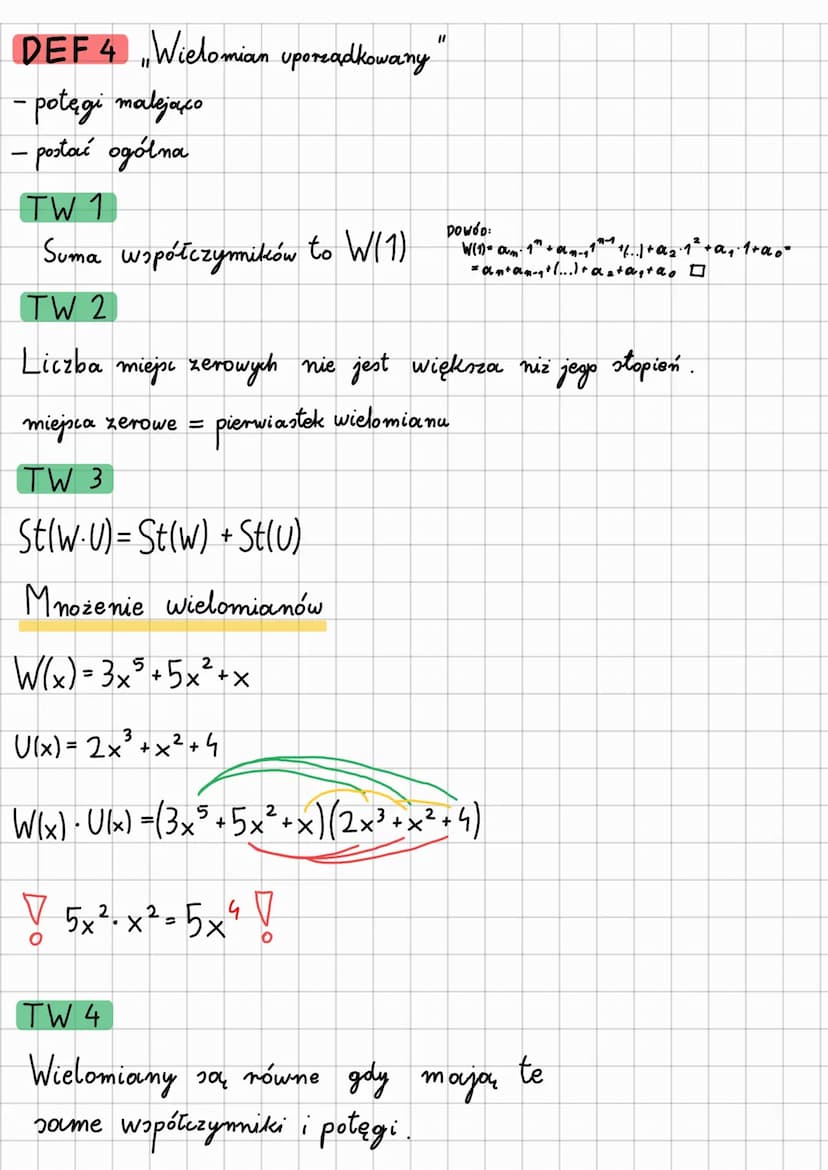 DEF 4 „Wielomian uporządkowany"
- potęgi malejąco
- postać ogólna
TW 1
Suma współczynników to W(1)
DOWÓD:
W(1)= aₙ·1ⁿ+aₙ₋₁1ⁿ⁻¹+(...)+a₂·1²+a₁·1+a₀=
=aₙ+aₙ₋₁+(...)+a₂+a₁+a₀ □
TW 2
Liczba miejsc zerowych nie jest większa niż jego stopień.
miejsca zerowe = pierwiastek wielomianu
TW 3
St(W·U)= St(W) + St(U)
Mnożenie wielomianów
W(x)=3x⁵+5x²+x
U(x)= 2x³+x²+4
W(x)·U(x)=(3x⁵+5x²+x)(2x³+x²+4)
! 5x²·x²=5x⁴ !
TW 4
Wielomiany są równe gdy mają te
same współczynniki i potęgi.